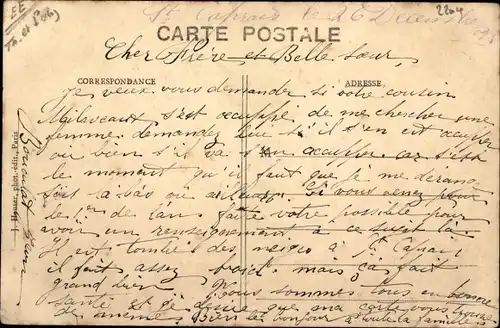 EE
2204
St Caprais le 26 Décembre
CARTE POSTALE
Cher Frère et Belle Sœur,
CORRESPONDANCE
ADRESSE
Je veux vous demander si votre cousin
s'est occuppé de me chercher une
femme. demandez lui s'il s'en est occuper
ou bien s'il va s'en occupper. car s'est
le moment qu'il faut que je me deran
soit la bàs ou ailleurs. Si vous venez pour
le 1er de lan. faite votre possible pour
avoir un renseignement a ce sujet la.
Il est tombé des neiges à St Caprais
il fait assez froid. mais ça fait
grand bien. Nous sommes tous en bonne
santé et je désire que ma carte vous trouve
de même. Bien le bonjour a toute la famille
phot. édit. Paris